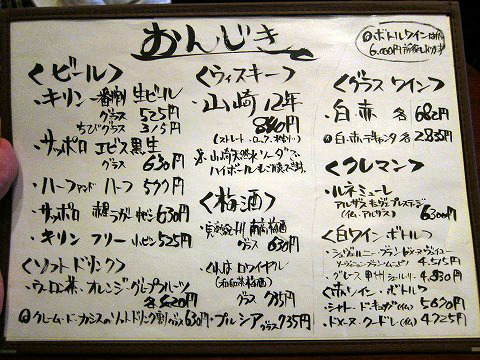 おんじき
ボトルワインは
6,000円
<ビール>
・キリン 一番搾り 生ビール
グラス 525円
ちびグラス 315円
・サッポロ ヱビス黒生
グラス 630円
・ハーフ アンド ハーフ 577円
・サッポロ 赤星ラガー 中ビン 630円
・キリン フリー 小ビン 525円
<ソフトドリンク>
・ウーロン茶・オレンジ・グレープフルーツ
各420円
クレーム・ド・カシスのソフトドリンク割り グラス 630円
<ウィスキー>
・山崎12年
840円
(ストレート・ロック・水割り)
※山崎天然水ソーダで
ハイボールもご用意
<梅酒>
梅酒
グラス 630円
ロワイヤル
グラス 735円
・プルシア グラス 735円
<グラスワイン>
・白・赤 各 682円
白・赤デキャンタ 各 2835円
<クレマン>
・ルネミューレ
アルザス キュヴェプレステージ
(仏・アルザス) 6300円
<白ワイン ボトル>
4,515円
・グレース 甲州 4,830円
<赤ワイン・ボトル>
5670円
4725円